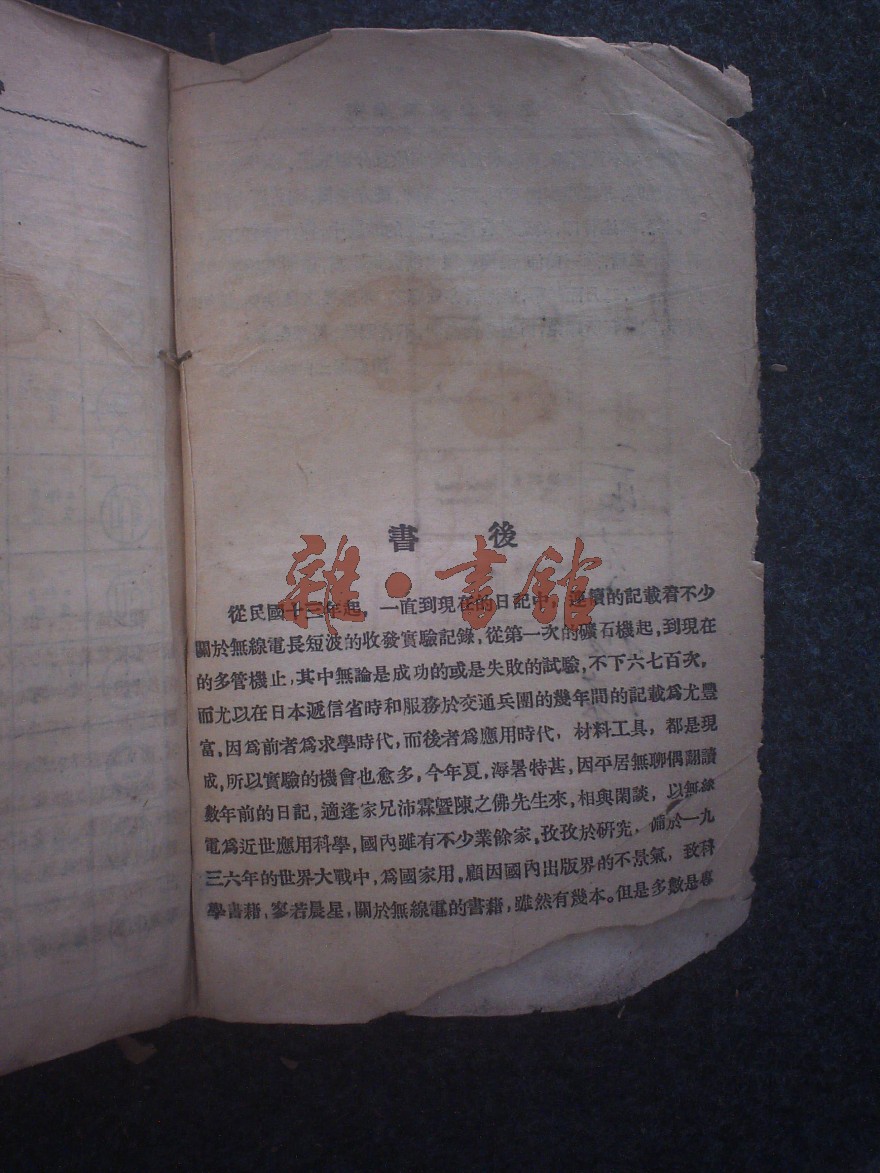 書後
從民國十三年起，一直到現在的日記中，連續的記載着不少
關於無線電長短波的收發實驗記錄，從第一次的礦石機起，到現在
的多管機止，其中無論是成功的或是失敗的試驗，不下六七百次，
而尤以在日本遞信省時和服務於交通兵團的幾年間的記載爲尤豐
富，因爲前者爲求學時代，而後者爲應用時代，材料工具，都是現
成，所以實驗的機會也愈多，今年夏，海暑特甚，因平居無聊偶翻讀
數年前的日記，適逢家兄沛霖暨陳之佛先生來，相與閑談，以無線
電爲近世應用科學，國內雖有不少業餘家，孜孜於研究，備於一九
三六年的世界大戰中，爲國家用，顧因國內出版界的不景氣，致科
學書藉，寥若晨星，關於無線電的書藉，雖然有幾本。但是多數是專
雜·書館